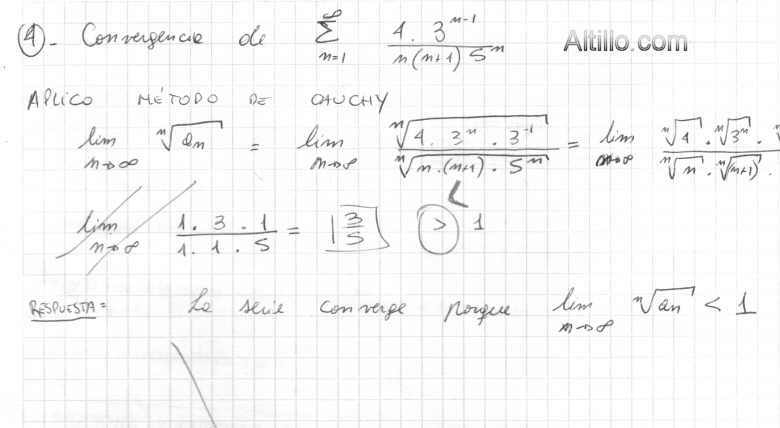 4.- Convergencia de ∑_{n=1}^{∞} \frac{4 . 3^{n-1}}{n(n+1) 5^n}
Altillo.com
APLICO MÉTODO DE CAUCHY
lim_{n→∞} \sqrt[n]{an} = lim_{n→∞} \frac{\sqrt[n]{4 . 3^n . 3^{-1}}}{\sqrt[n]{n.(n+1) . 5^n}} = lim_{n→∞} \frac{\sqrt[n]{4} . \sqrt[n]{3^n} .}{\sqrt[n]{n} . \sqrt[n]{(n+1)} .}
<
lim_{n→∞} \frac{1 . 3 . 1}{1 . 1 . 5} = \frac{3}{5} > 1
RESPUESTA= La serie converge porque lim_{n→∞} \sqrt[n]{an} < 1